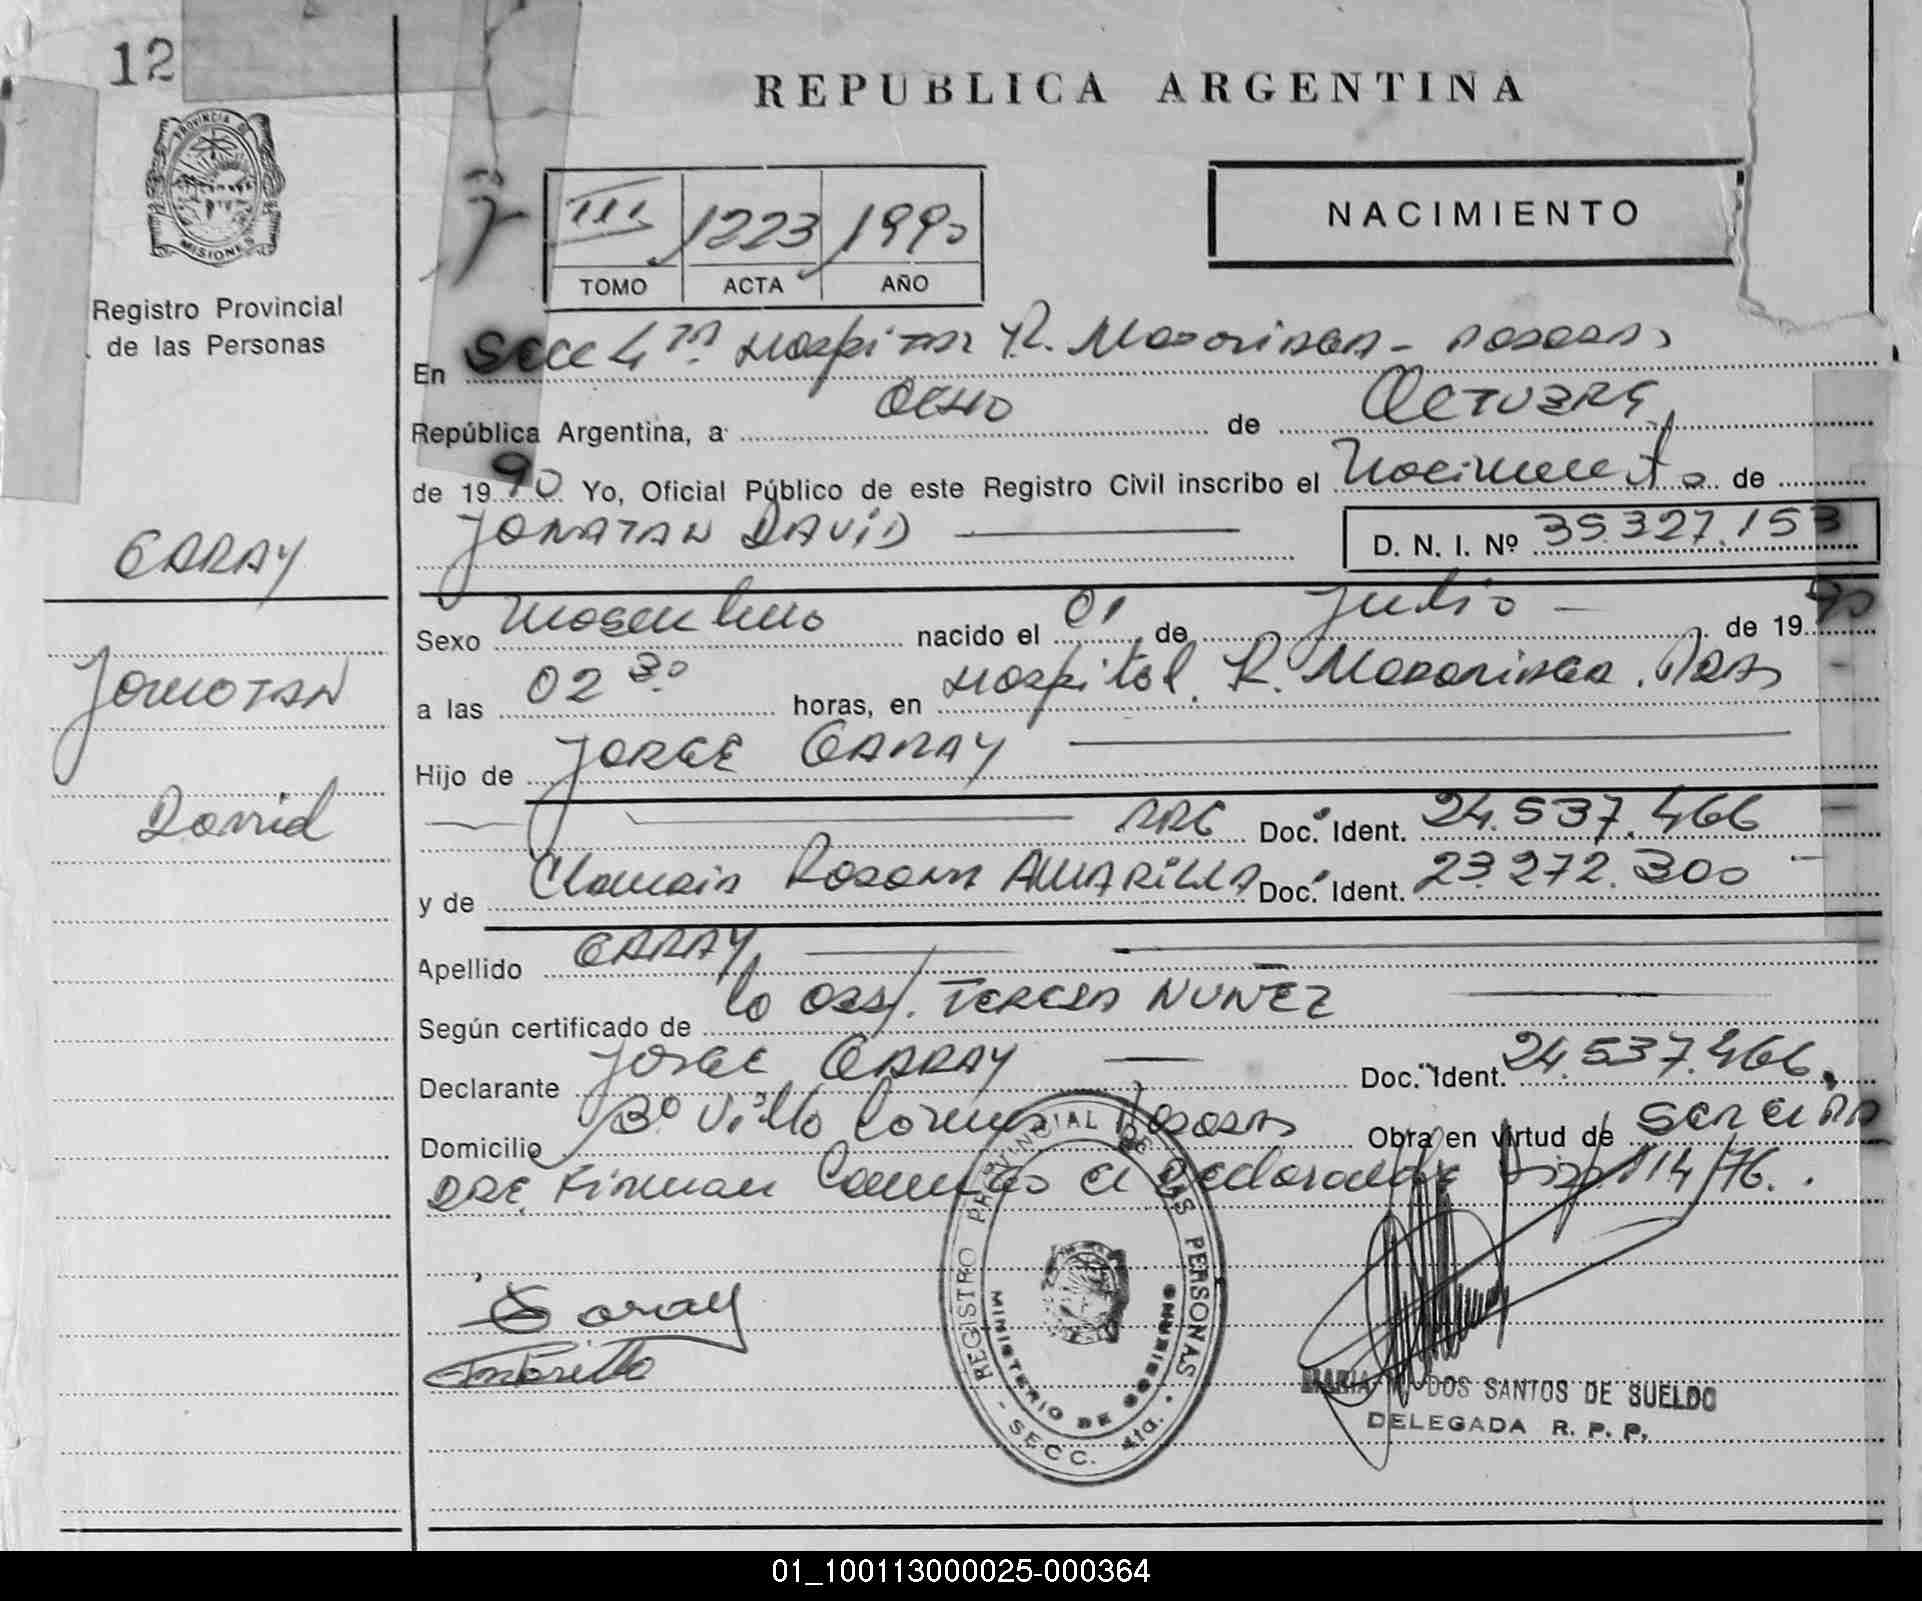 12
REPUBLICA ARGENTINA
PROVINCIA DE
MISIONES
Registro Provincial
de las Personas
III 1223 1990
TOMO ACTA AÑO
NACIMIENTO
En Secc 4ta Hospital R. Madariaga - Posadas
República Argentina, a ocho de Octubre
de 1990 Yo, Oficial Público de este Registro Civil inscribo el Nacimiento de
JONATAN DAVID D. N. I. Nº 35.327.153
GARAY
Jonatan
David
Sexo Masculino nacido el 01 de Julio de 1990
a las 02 30 horas, en Hospital R. Madariaga. Pdas
Hijo de JORGE GARAY
ARG Doc. Ident. 24.537.466
y de Claudia Rosana AMARILLA Doc. Ident. 23.272.300
Apellido GARAY
Según certificado de la Obst. TERESA NUÑEZ
Declarante JORGE GARAY Doc. Ident. 24.537.466.
Domicilio Bº Villa Posadas Obra en virtud de ser el PA
DRE, Firman el declarante 114/76.
Garay
Amarilla
REGISTRO PROVINCIAL DE LAS PERSONAS
MINISTERIO DE GOBIERNO
- SECC. 4ta. -
MARIA DOS SANTOS DE SUELDO
DELEGADA R. P. P.
01_100113000025-000364